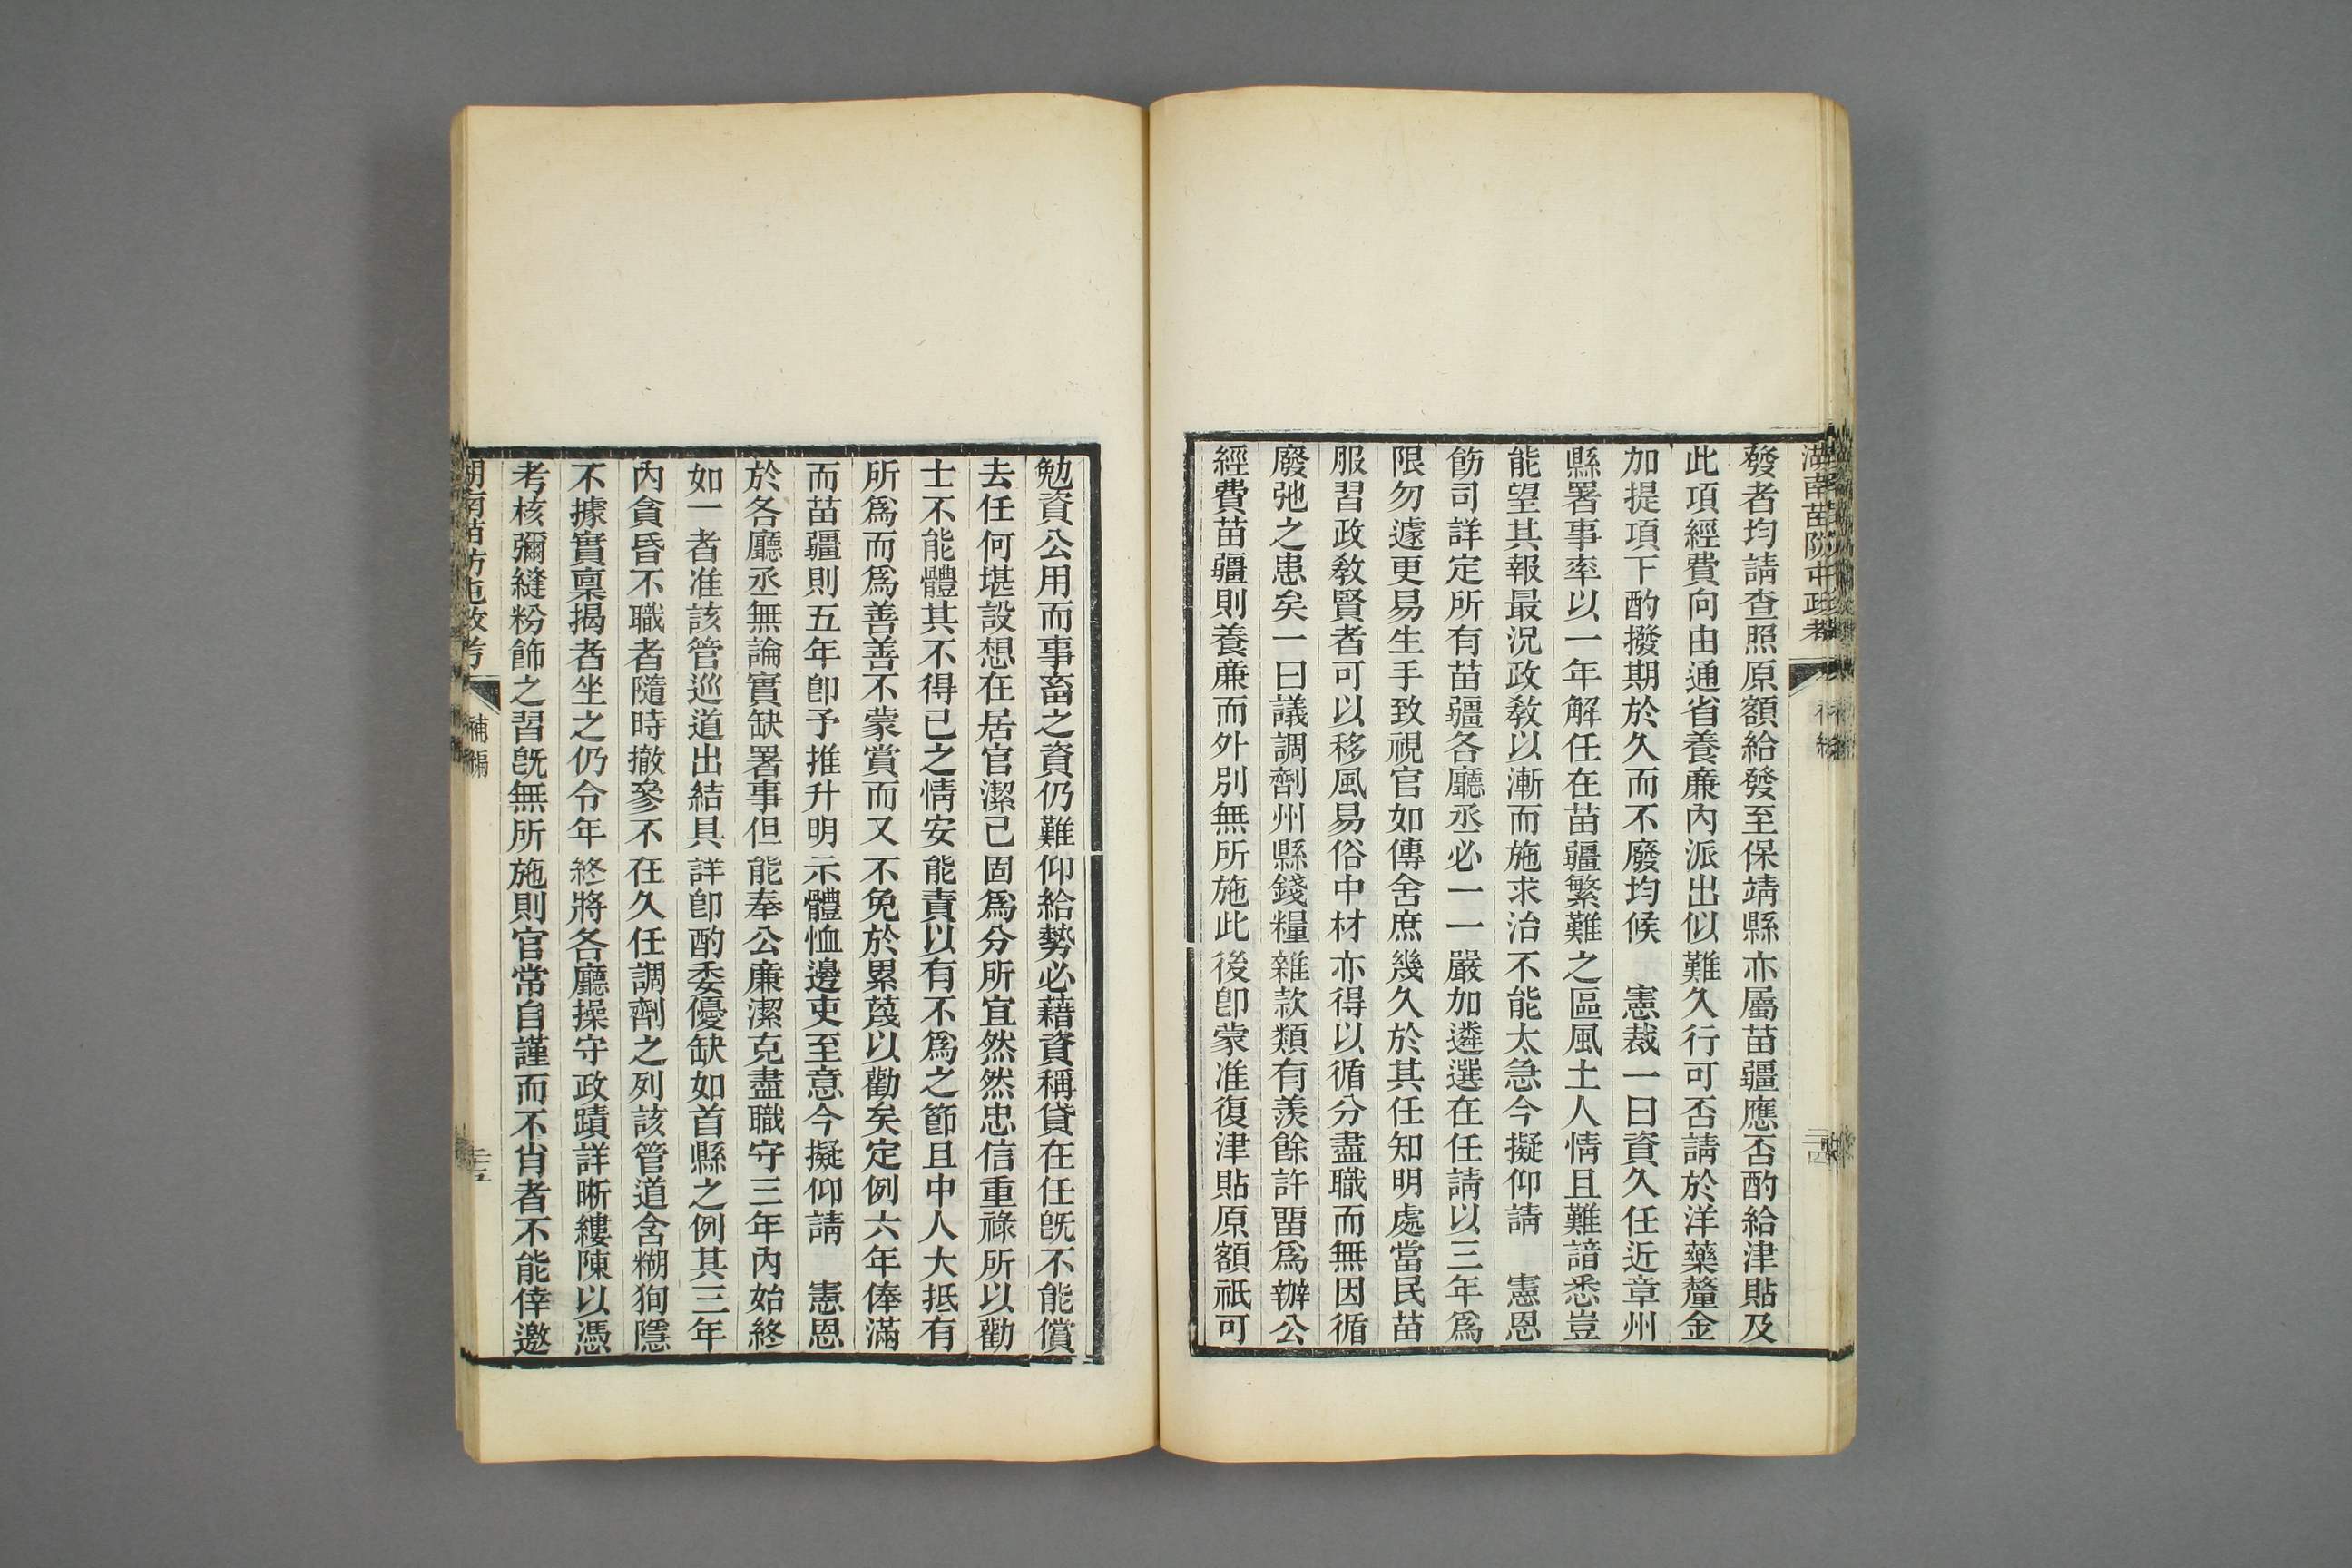 湖南苗防屯政考 補編
發者均請查照原額給發至保靖縣亦屬苗疆應否酌給津貼及
此項經費向由通省養廉內派出似難久行可否請於洋藥釐金
加提項下酌撥期於久而不廢均候　憲裁一曰資久任近章州
縣署事率以一年解任在苗疆繁難之區風土人情且難諳悉豈
能望其報最況政敎以漸而施求治不能太急今擬仰請　憲恩
飭司詳定所有苗疆各廳丞必一一嚴加遴選在任請以三年爲
限勿遽更易生手致視官如傳舍庶幾久於其任知明處當民苗
服習政敎賢者可以移風易俗中材亦得以循分盡職而無因循
廢弛之患矣一曰議調劑州縣錢糧雜款類有羨餘許畱爲辦公
經費苗疆則養廉而外別無所施此後卽蒙准復津貼原額祇可
勉資公用而事畜之資仍難仰給勢必藉資稱貸在任旣不能償
去任何堪設想在居官潔己固爲分所宜然然忠信重祿所以勸
士不能體其不得已之情安能責以有不爲之節且中人大抵有
所爲而爲善善不蒙賞而又不免於累蔑以勸矣定例六年俸滿
而苗疆則五年卽予推升明示體恤邊吏至意今擬仰請　憲恩
於各廳丞無論實缺署事但能奉公廉潔克盡職守三年內始終
如一者准該管巡道出結具詳卽酌委優缺如首縣之例其三年
內貪昏不職者隨時撤參不在久任調劑之列該管道含糊徇隱
不據實稟揭者坐之仍令年終將各廳操守政蹟詳晰縷陳以憑
考核彌縫粉飾之習旣無所施則官常自謹而不肖者不能倖邀
湖南苗防屯政考 補編